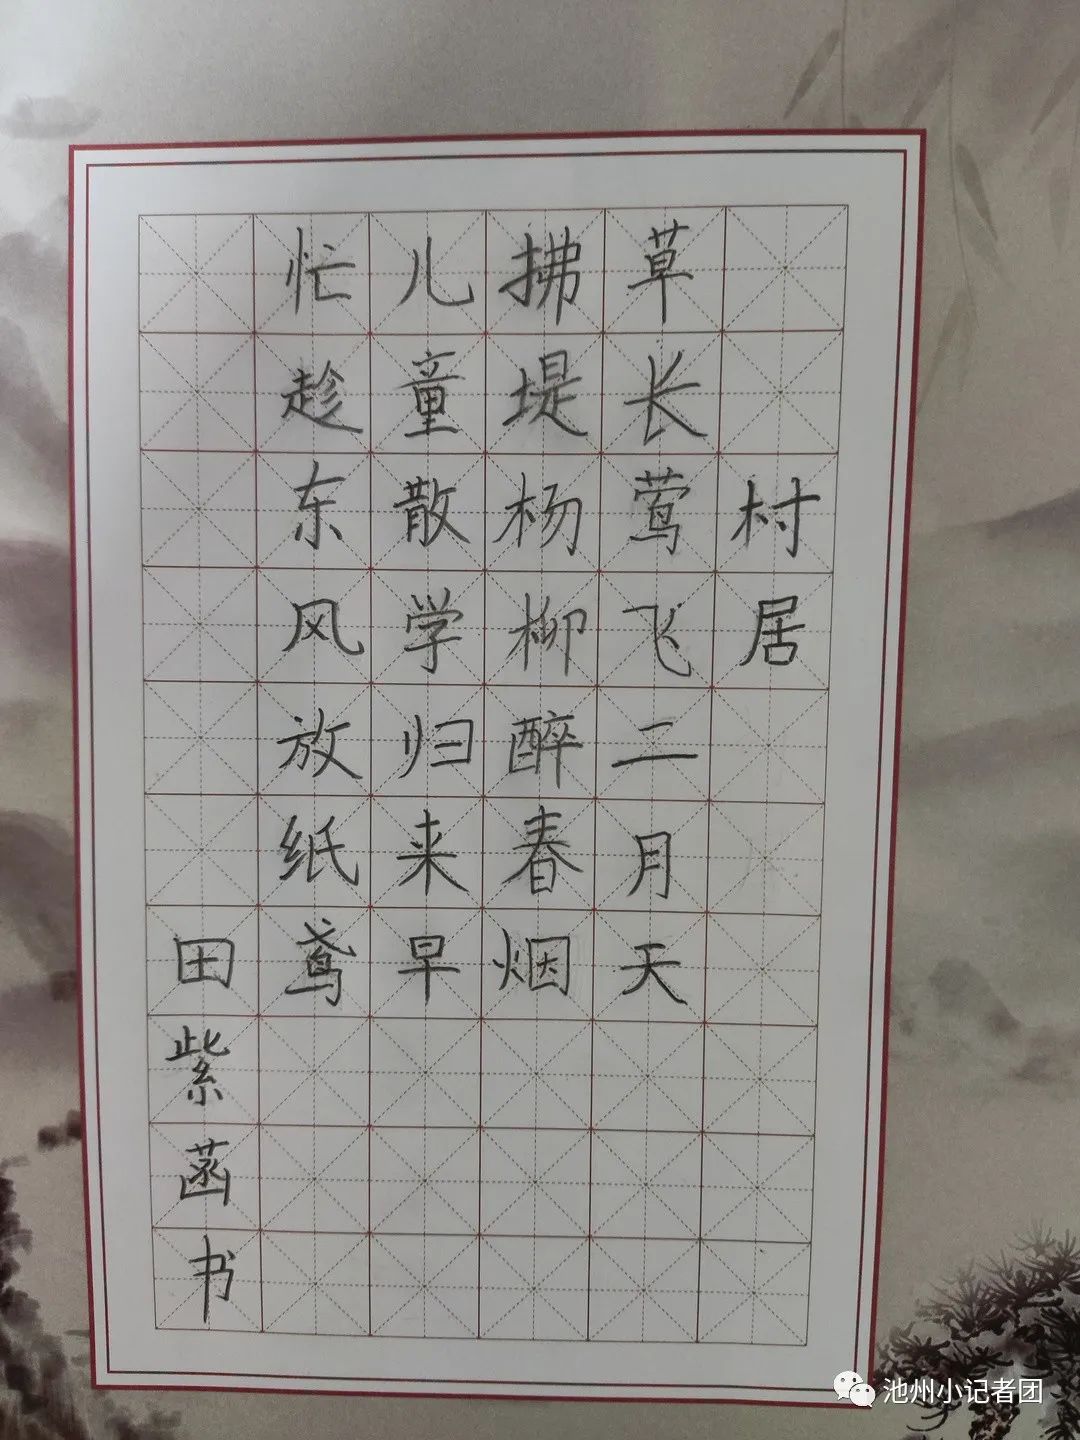 村居
草长莺飞二月天
拂堤杨柳醉春烟
儿童散学归来早
忙趁东风放纸鸢
田紫菡书
池州小记者团